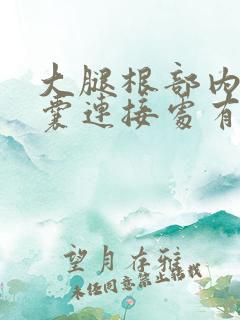 大腿根部内
囊連接處有
望月存雅
未经同意禁止转载